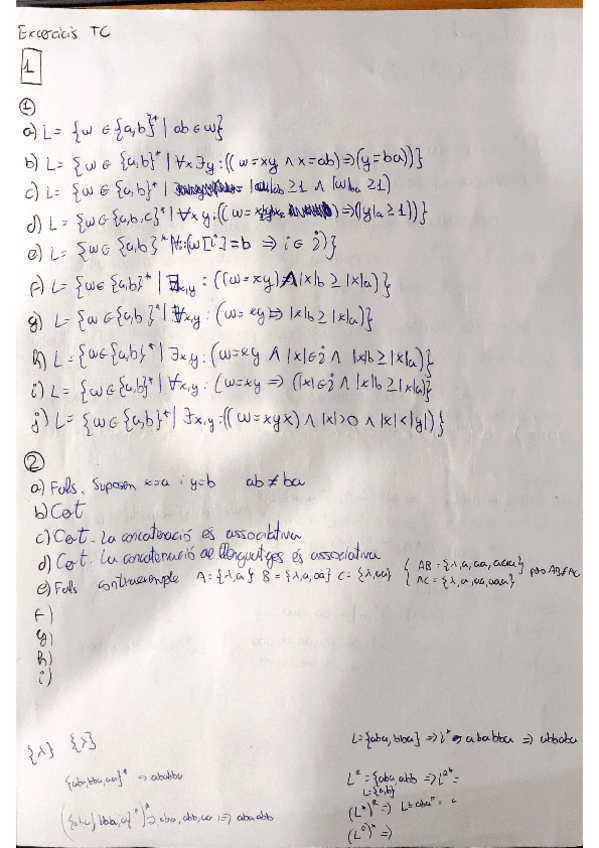 Excercicis TC
1
①
a) L = {w ∈ {a,b}* | ab ∈ w}
b) L = {w ∈ {a,b}* | ∀x ∃y : ((w=xy ∧ x=ab) ⇒ (y=ba))}
c) L = {w ∈ {a,b}* | |w|ab ≥ 1 ∧ |w|ba ≥ 1}
d) L = {w ∈ {a,b,c}* | ∀x y : ((w = ) ⇒ (|y|a ≥ 1))}
e) L = {w ∈ {a,b}* | : (w[i] = b ⇒ i ∈ )}
f) L = {w ∈ {a,b}* | ∃x,y : ((w = xy) ∧ |x|b ≥ |x|a)}
g) L = {w ∈ {a,b}* | ∀x,y : (w = xy ⇒ |x|b ≥ |x|a)}
h) L = {w ∈ {a,b}* | ∃x,y : (w = xy ∧ |x| ∈ ∧ |x|b ≥ |x|a)}
i) L = {w ∈ {a,b}* | ∀x,y : (w = xy ⇒ (|x| ∈ ∧ |x|b ≥ |x|a)}
j) L = {w ∈ {a,b}* | ∃x,y : ((w = xyx) ∧ |x|>0 ∧ |x|<|y|)}
②
a) Fals. Suposen x=a i y=b ab ≠ ba
b) Cert
c) Cert. La concatenació és associativa
d) Cert. La concatenació de llenguatges és associativa
e) Fals contraexemple A = {λ,a} B = {λ,a,aa} C = {λ,aa} { AB = {λ,a,aa,aaa} AC = {λ,a,aa,aaa} pero AB≠AC
f)
g)
h)
i)
{λ} {λ}
L = {aba, bba} ⇒ L* ⇒ ababba ⇒ abbaba
{aba, bba, aa}* ⇒ ababba
L² = {aba, abb ⇒ L²* =
L = {a,b}
(L*)² ⇒
(L⁰)* ⇒